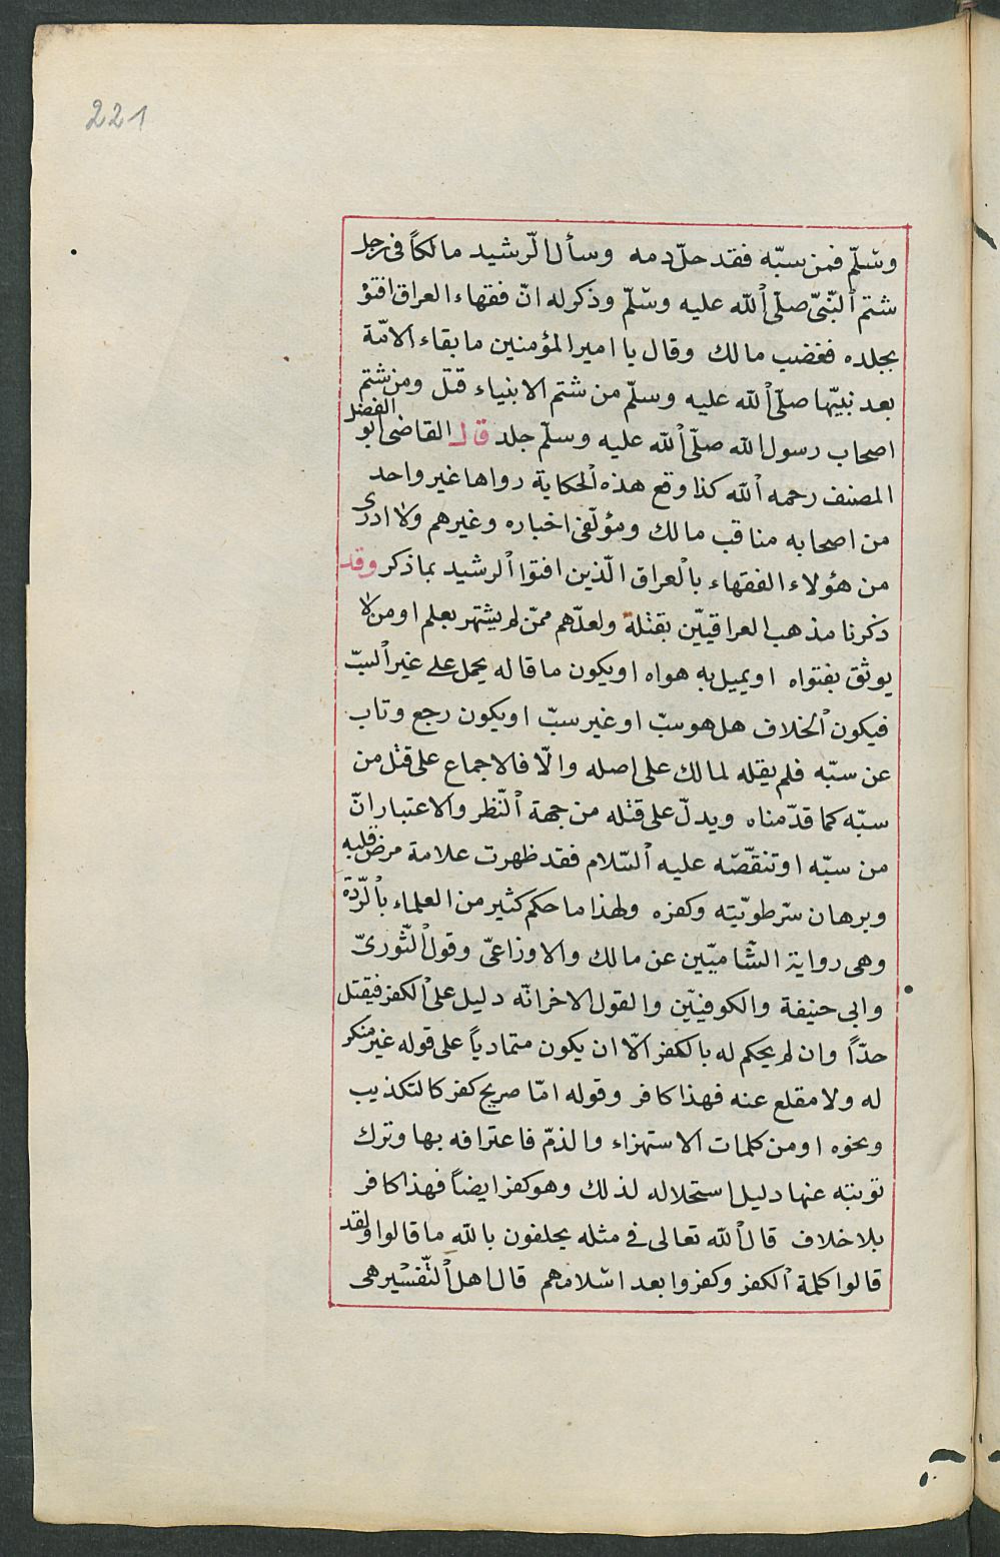 221
وسّلّم فمن سبّه فقد حلّ دمه وسأل الّرشيد مالكاً فى رجل
شتم ٱلنّبىّ صلّى ٱلله عليه وسّلّم وذكر له انّ فقهاء العراق افتوْ
بجلده فغضب مالك وقال يا امير المؤمنين ما بقاء الامّة
بعد نبيّها صلّى ٱلله عليه وسلّم من شتم الانبياء قتل ومن شتم
اصحاب رسول الله صلّى ٱلله عليه وسلّم جلد قال القاضى ابو الفضل
المصنف رحمه ٱلله كذا وقع هذه ٱلحكاية رواها غير واحد
من اصحابه مناقب مالك ومؤلّفى اخباره وغيرهم ولا ادرى
من هؤلاء الفقهاء بٱلعراق الّذين افتوا ٱلرشيد بما ذكر وقد
ذكرنا مذهب العراقييّن بقتلة ولعلّهم ممّن لم يشتهر بعلم او من لا
يوثق بفتواه او يميل به هواه او يكون ما قاله يحمل على غير ٱلسبّ
فيكون ٱلخلاف هل هو سبّ او غير سبّ او يكون رجع وتاب
عن سبّه فلم يقله لمالك على اصله والّا فالاجماع على قتل من
سبّه كما قدّمناه ويدلّ على قتله من جهة ٱلنّظر والاعتبار انّ
من سبّه او تنقّصّه عليه ٱلسّلام فقد ظهرت علامة مرض قلبه
وبرهان سرّ طويّته وكفره ولهذا ما حكم كثير من العلماء بٱلرّدّة
وهى رواية الشّاميّين عن مالك والاوزاعىّ وقول ٱلثّورىّ
وابى حنيفة والكوفييّن والقول الاخر انّه دليل على ٱلكفر فيقتل
حدّاً وان لم يحكم له بالكفر الّا ان يكون متمادياً على قوله غير منكر
له ولا مقلع عنه فهذا كافر وقوله امّا صريح كفر كالتكذيب
ونحوه او من كلمات الاستهزاء والذمّ فاعترافه بها وترك
توبته عنها دليل استحلاله لذلك وهو كفر ايضاً فهذا كافر
بلا خلاف قال ٱلله تعالى فى مثله يحلفون بالله ما قالوا ولقد
قالوا كلمة ٱلكفر وكفروا بعد اسلامهم قال اهل ٱلتّفسير هى